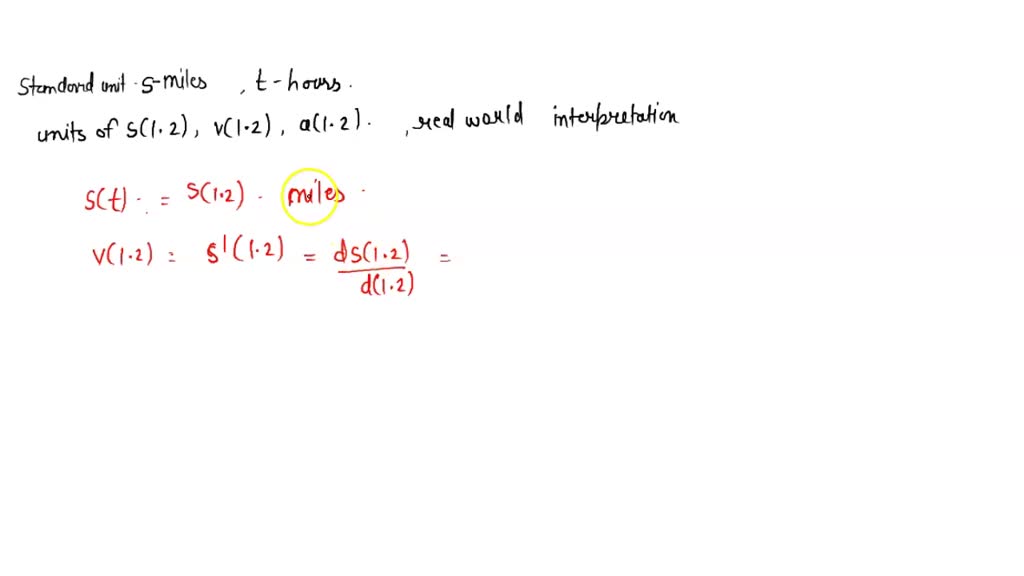 Standard unit · s-miles , t-hours.
units of s(1.2), v(1.2), a(1.2). , real world interpretation
s(t) . = s(1.2) . miles .
v(1.2) = s'(1.2) = ds(1.2)/d(1.2) =